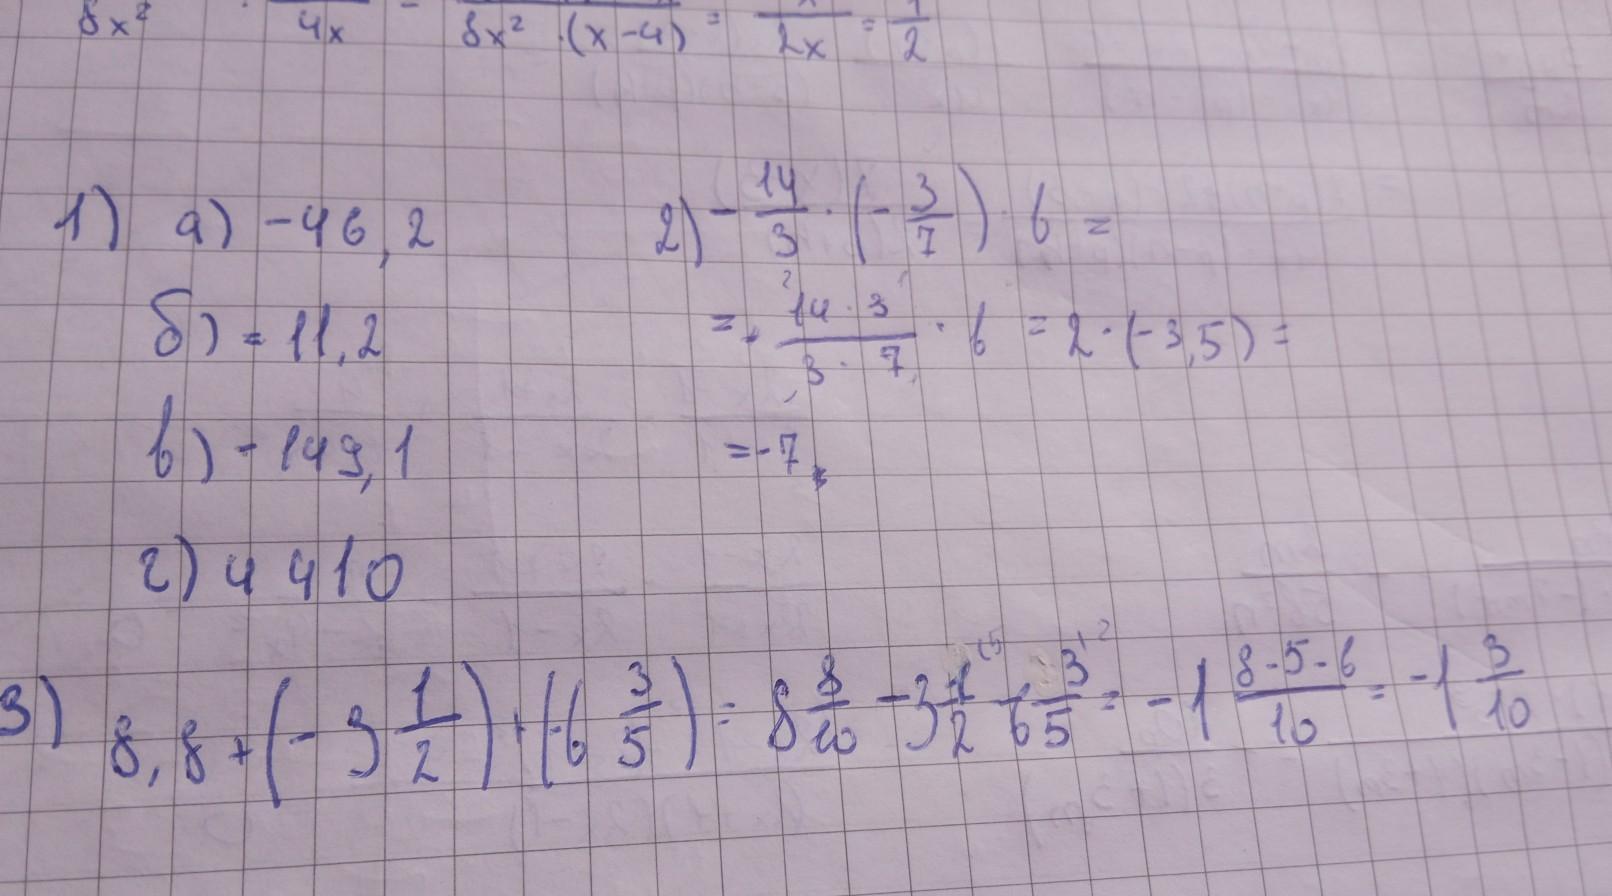 8x² · / 4x = / 8x² · (x-4) = x / 2x = 1/2
1) а) -46,2
б) = 11,2
в) - 149,1
г) 4 410
2) - 14/3 · (- 3/7) · b =
= · 14 · 3 / 3 · 7 · b = 2 · (-3,5) =
= -7
3) 8,8 + (-3 1/2) + (-6 3/5) = 8 8/10 - 3 1/2 - 6 3/5 = -1 8-5-6/10 = -1 3/10